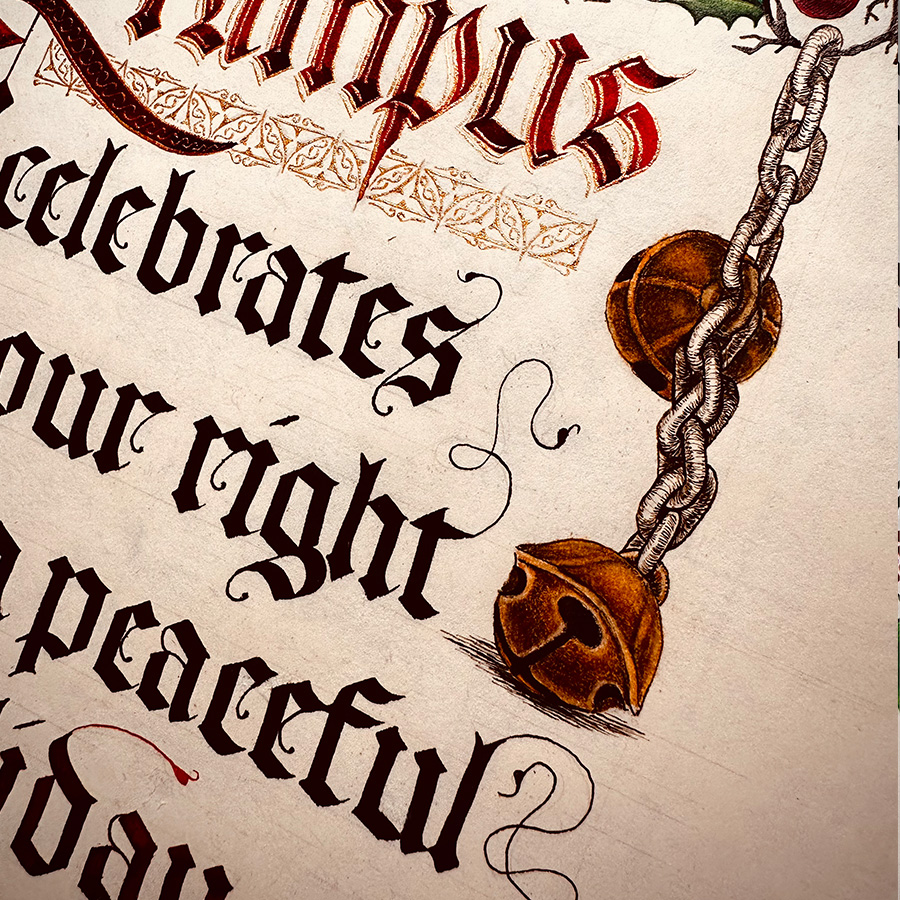 Krampus
celebrates
our right
peaceful
iday